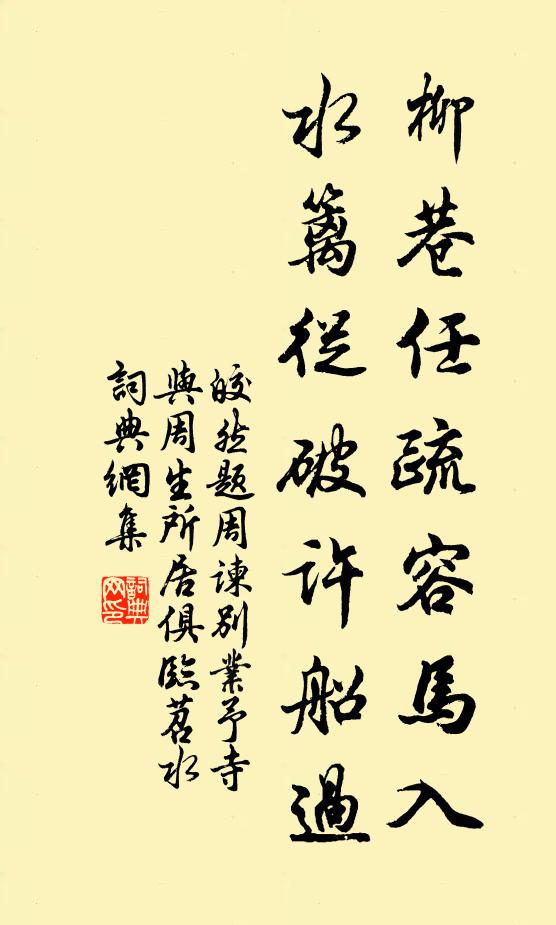 柳巷任疏容馬入
水籬從破許船過
皎然題周諫別業予寺
與周生所居俱臨苕水
詞典網集
詞典
网印